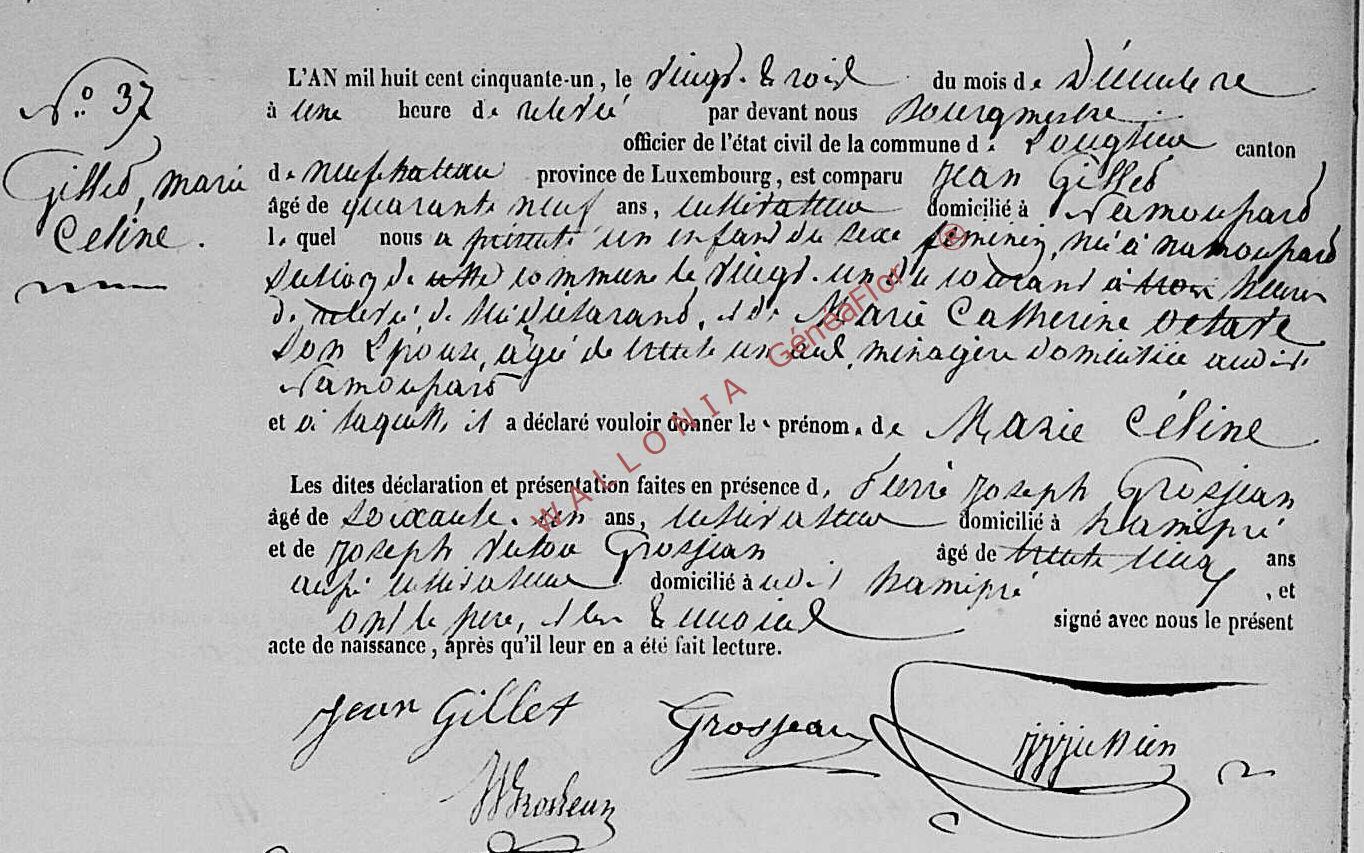 N.° 37
Gilles, Marie
Celine.
L'AN mil huit cent cinquante-un, le vingt-trois du mois de Décembre
à une heure de relevée par devant nous Bourgmestre
officier de l'état civil de la commune d. Longlier canton
de neufchateau province de Luxembourg, est comparu Jean Gilles
âgé de quarante neuf ans, cultivateur domicilié à Namoussart
lequel nous a présenté un enfant du sexe féminin, née à namoussart
section de cette commune le vingt-un du courant à trois heures
de relevée, de lui déclarant, et de Marie Catherine
son épouse, âgée de trente un ans, ménagère domiciliée audit
Namoussart
et à laquelle il a déclaré vouloir donner les prénoms de Marie Céline
Les dites déclaration et présentation faites en présence d. Pierre Joseph Grosjean
âgé de soixante-un ans, cultivateur domicilié à hamipré
et de Joseph Victor Grosjean âgé de trente cinq ans
aussi cultivateur domicilié audit hamipré, et
ont le père, et les témoins signé avec nous le présent
acte de naissance, après qu'il leur en a été fait lecture.
Jean Gillet Grosjean
Grosjean
WALLONIA GénéaFlor ©